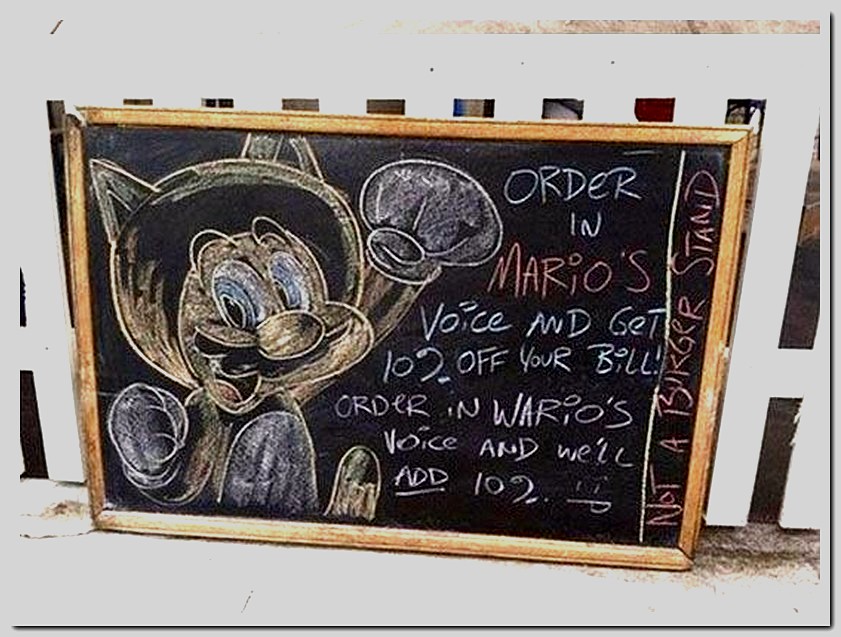 ORDER
IN
MARiO'S
VOiCE AND GET
10% OFF YOUR BiLL!
ORDER iN WARiO'S
VOiCE AND we'll
ADD 10%. :)
NOT A BURGER STAND